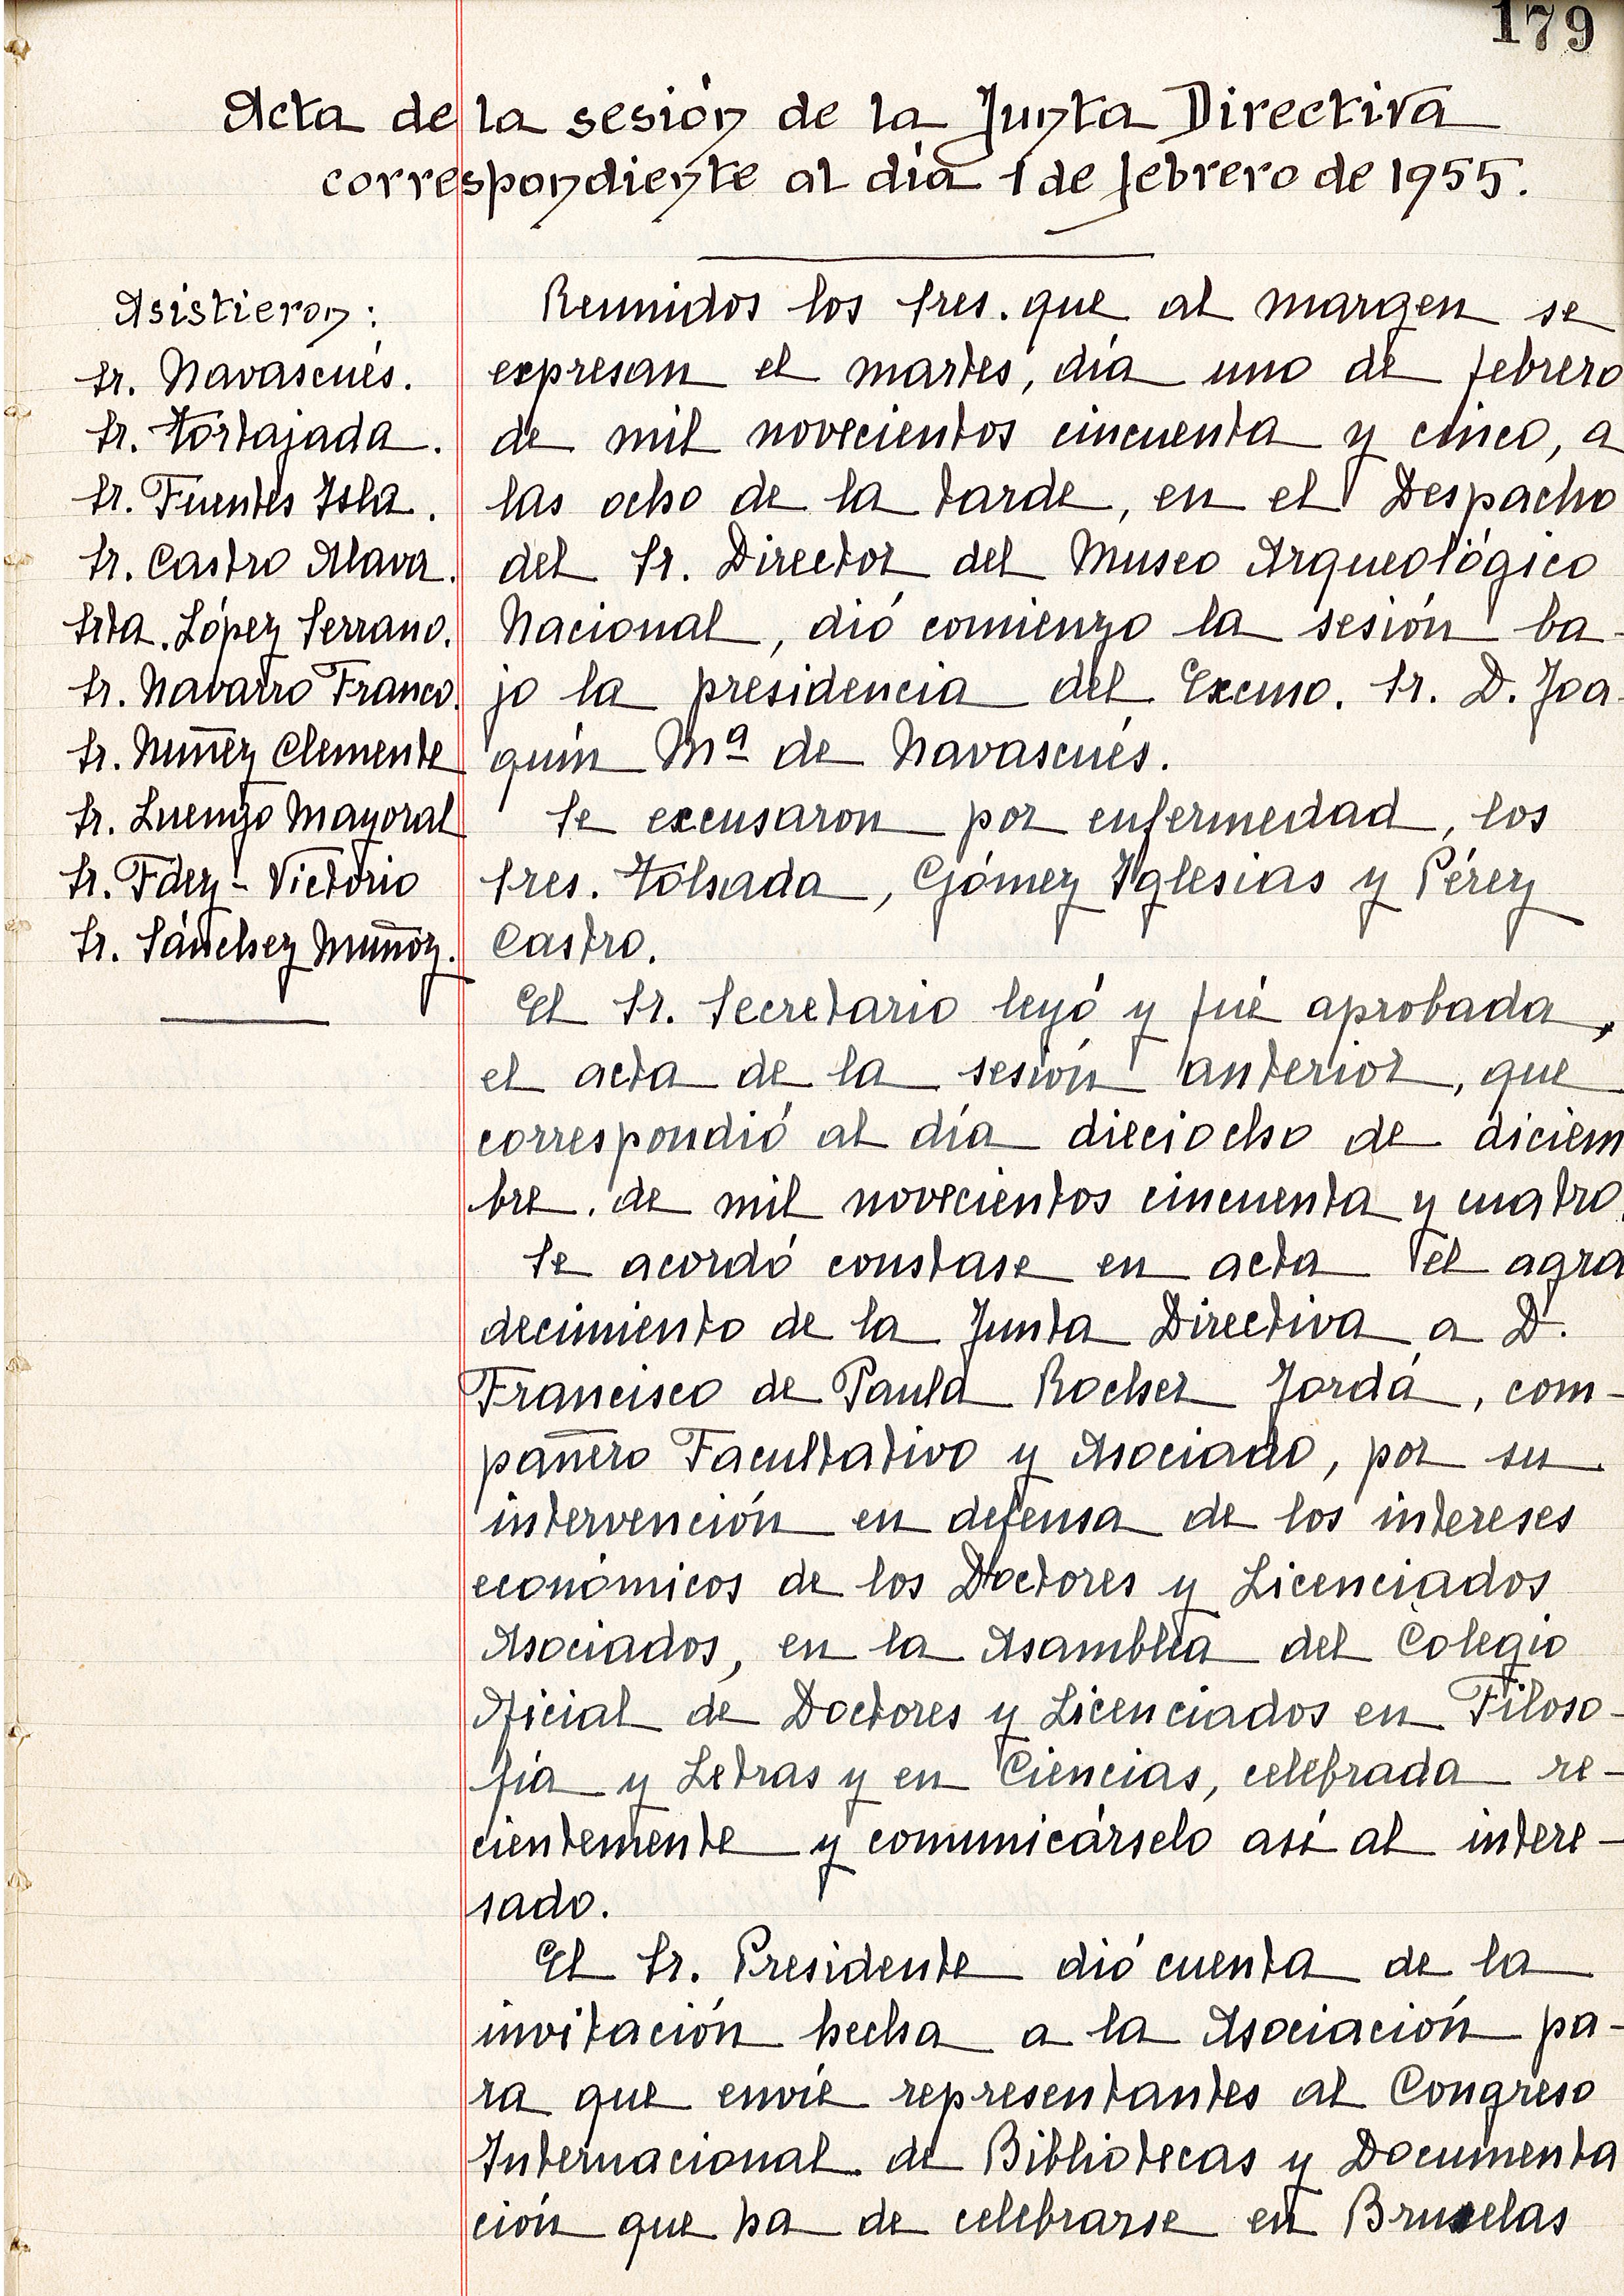 179
Acta de la sesión de la Junta Directiva
correspondiente al día 1 de febrero de 1955.
Asistieron:
Sr. Navascués.
Sr. Tortajada.
Sr. Fuentes Isla.
Sr. Castro Alava.
Srta. López Serrano.
Sr. Navarro Franco.
Sr. Nuñez Clemente
Sr. Luengo Mayoral
Sr. Fdez-Victorio
Sr. Sánchez Muñoz.
Reunidos los Sres. que al margen se
expresan el martes, día uno de febrero
de mil novecientos cincuenta y cinco, a
las ocho de la tarde, en el Despacho
del Sr. Director del Museo Arqueológico
Nacional, dió comienzo la sesión ba-
jo la presidencia del Excmo. Sr. D. Joa-
quín Mª de Navascués.
Se excusaron por enfermedad, los
Sres. Tolsada, Gómez Iglesias y Pérez
Castro.
El Sr. Secretario leyó y fué aprobada,
el acta de la sesión anterior, que
correspondió al día dieciocho de diciem
bre. de mil novecientos cincuenta y cuatro.
Se acordó constase en acta el agra
decimiento de la Junta Directiva a D.
Francisco de Paula Rocher Jordá, com-
pañero Facultativo y Asociado, por su
intervención en defensa de los intereses
económicos de los Doctores y Licenciados
Asociados, en la Asamblea del Colegio
Oficial de Doctores y Licenciados en Filoso-
fía y Letras y en Ciencias, celebrada re-
cientemente y comunicárselo así al intere-
sado.
El Sr. Presidente dió cuenta de la
invitación hecha a la Asociación pa-
ra que envíe representantes al Congreso
Internacional de Bibliotecas y Documenta
ción que ha de celebrarse en Bruselas